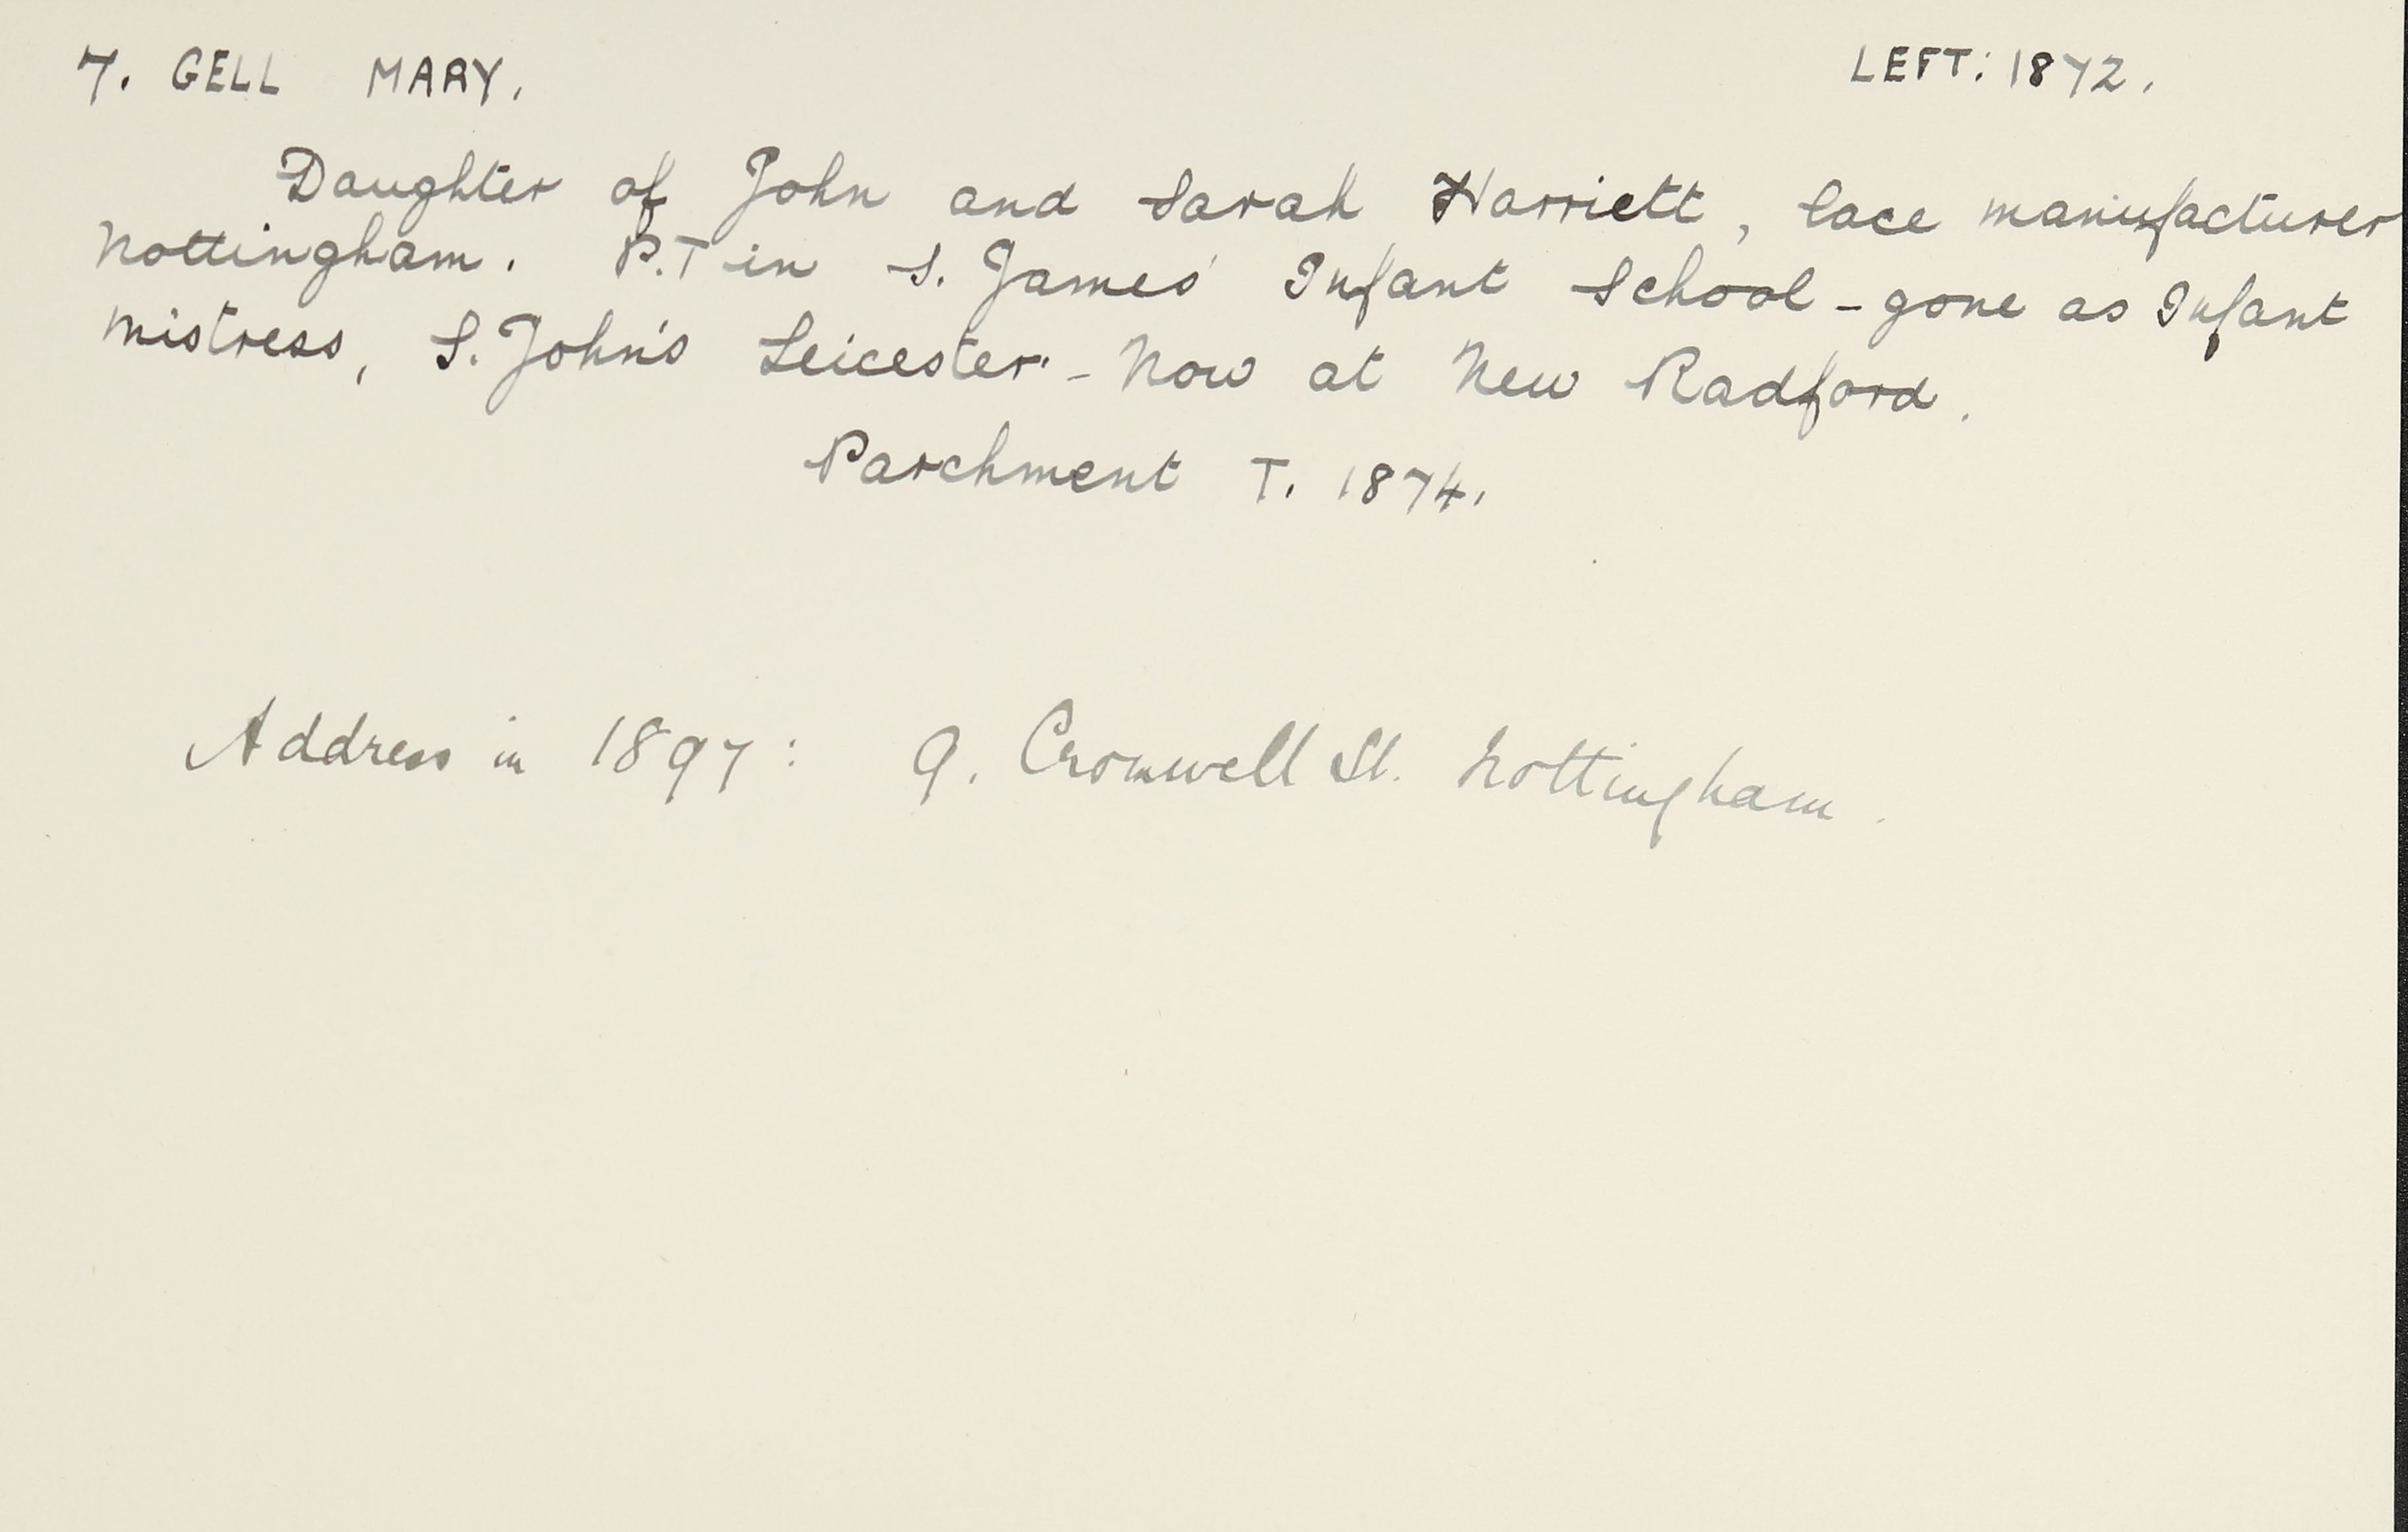 7. GELL MARY. LEFT: 1872.
Daughter of John and Sarah Harriett, lace manufacturer
Nottingham. P.T in S. James' Infant School - gone as Infant
Mistress, S. John's Leicester - Now at New Radford.
Parchment T. 1874.
Address in 1897: 9. Cromwell St. Nottingham.